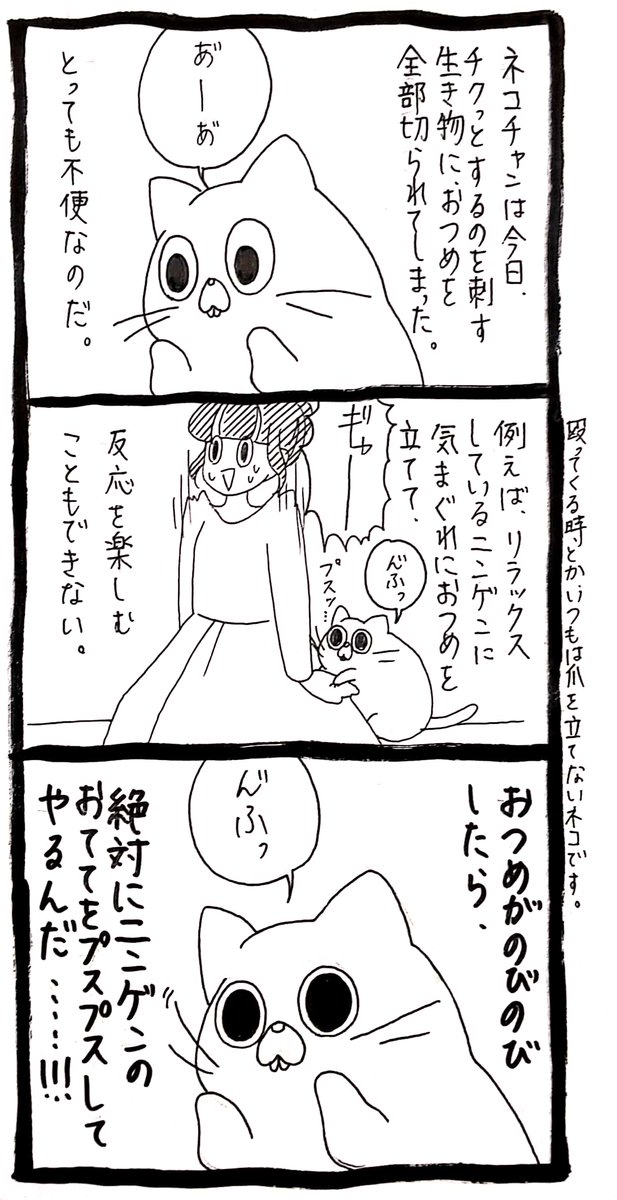 ネコチャンは今日、
チクっとするのを刺す
生き物に、おつめを
全部切られてしまった。
あ゛ーあ゛
とっても不便なのだ。
例えば、リラックス
しているニンゲンに
気まぐれにおつめを
立てて、
ギャー
ん゛ふっ
プスッ…
反応を楽しむ
こともできない。
殴ってくる時とかいつもは爪を立てないネコです。
おつめがのびのび
したら、
ん゛ふっ
絶対にニンゲンの
おててをプスプスして
やるんだ……!!!